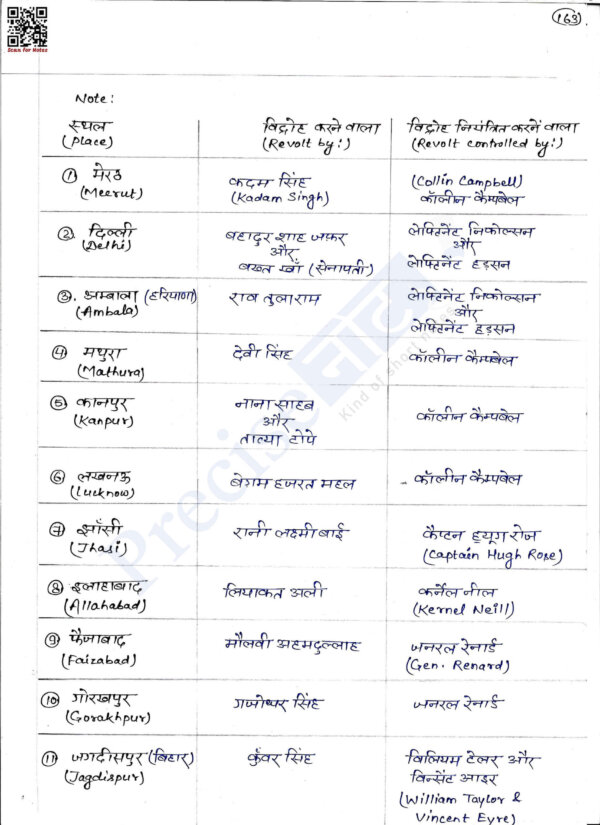 Scan for Notes
163
Note:
स्थल विद्रोह करने वाला विद्रोह नियंत्रित करनें वाला
(Place) (Revolt by:) (Revolt controlled by:)
① मेरठ कदम सिंह (Collin Campbell)
(Meerut) (Kadam Singh) कॉलीन कैम्पबेल
② दिल्ली बहादुर शाह जफ़र लेफ्टिनेंट निकोल्सन
(Delhi) और और
बख्त खाँ (सेनापती) लेफ्टिनेंट हडसन
③. अम्बाला (हरियाणा) राव तुलाराम लेफ्टिनेंट निकोल्सन
(Ambala) और
लेफ्टिनेंट हडसन
④ मथुरा देवी सिंह कॉलीन कैम्पबेल
(Mathura)
⑤ कानपुर नाना साहब कॉलीन कैम्पबेल
(Kanpur) और
तात्या टोपे
⑥ लखनऊ बेगम हजरत महल कॉलीन कैम्पबेल
(Lucknow)
⑦ झाँसी रानी लक्ष्मी बाई कैप्टन ह्यूग रोज
(Jhasi) (Captain Hugh Rose)
⑧ इलाहाबाद लियाकत अली कर्नल नील
(Allahabad) (Kernel Neill)
⑨ फैजाबाद मौलवी अहमदुल्लाह जनरल रेनार्ड
(Faizabad) (Gen. Renard)
⑩ गोरखपुर गजोधर सिंह जनरल रेनार्ड
(Gorakhpur)
⑪ जगदीसपुर (बिहार) कुँवर सिंह विलियम टेलर और
(Jagdispur) विन्सेंट आइर
(William Taylor &
Vincent Eyre)
Precise नोट्स
Kind of Short Notes